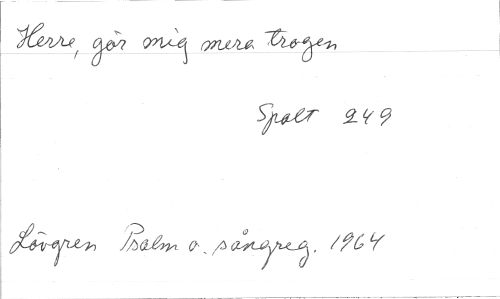 Herre, gör mig mera trogen
Spalt 249
Lövgren Psalm o. sångreg. 1964